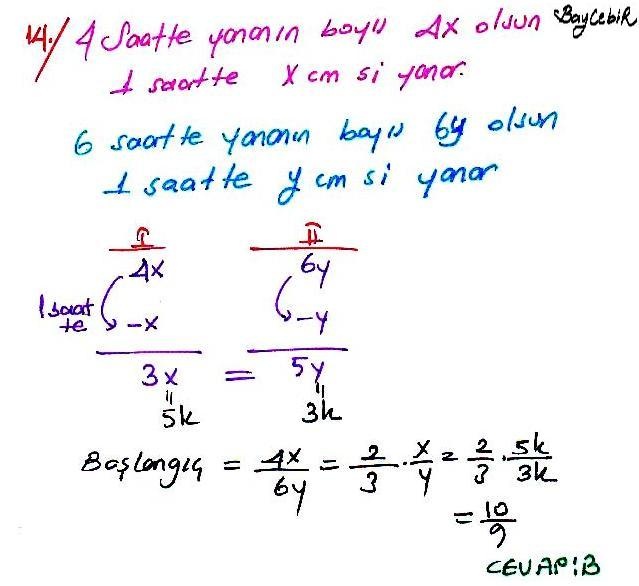 14./ 4 Saatte yananın boyu 4x olsun BayCebiR
1 saatte x cm si yanar.
6 saatte yananın boyu 6y olsun
1 saatte y cm si yanar
I II
4x 6y
1 saat
te -x -y
3x = 5y
" "
5k 3k
Başlangıç = 4x/6y = 2/3 . x/y = 2/3 . 5k/3k
= 10/9
CEVAP:B